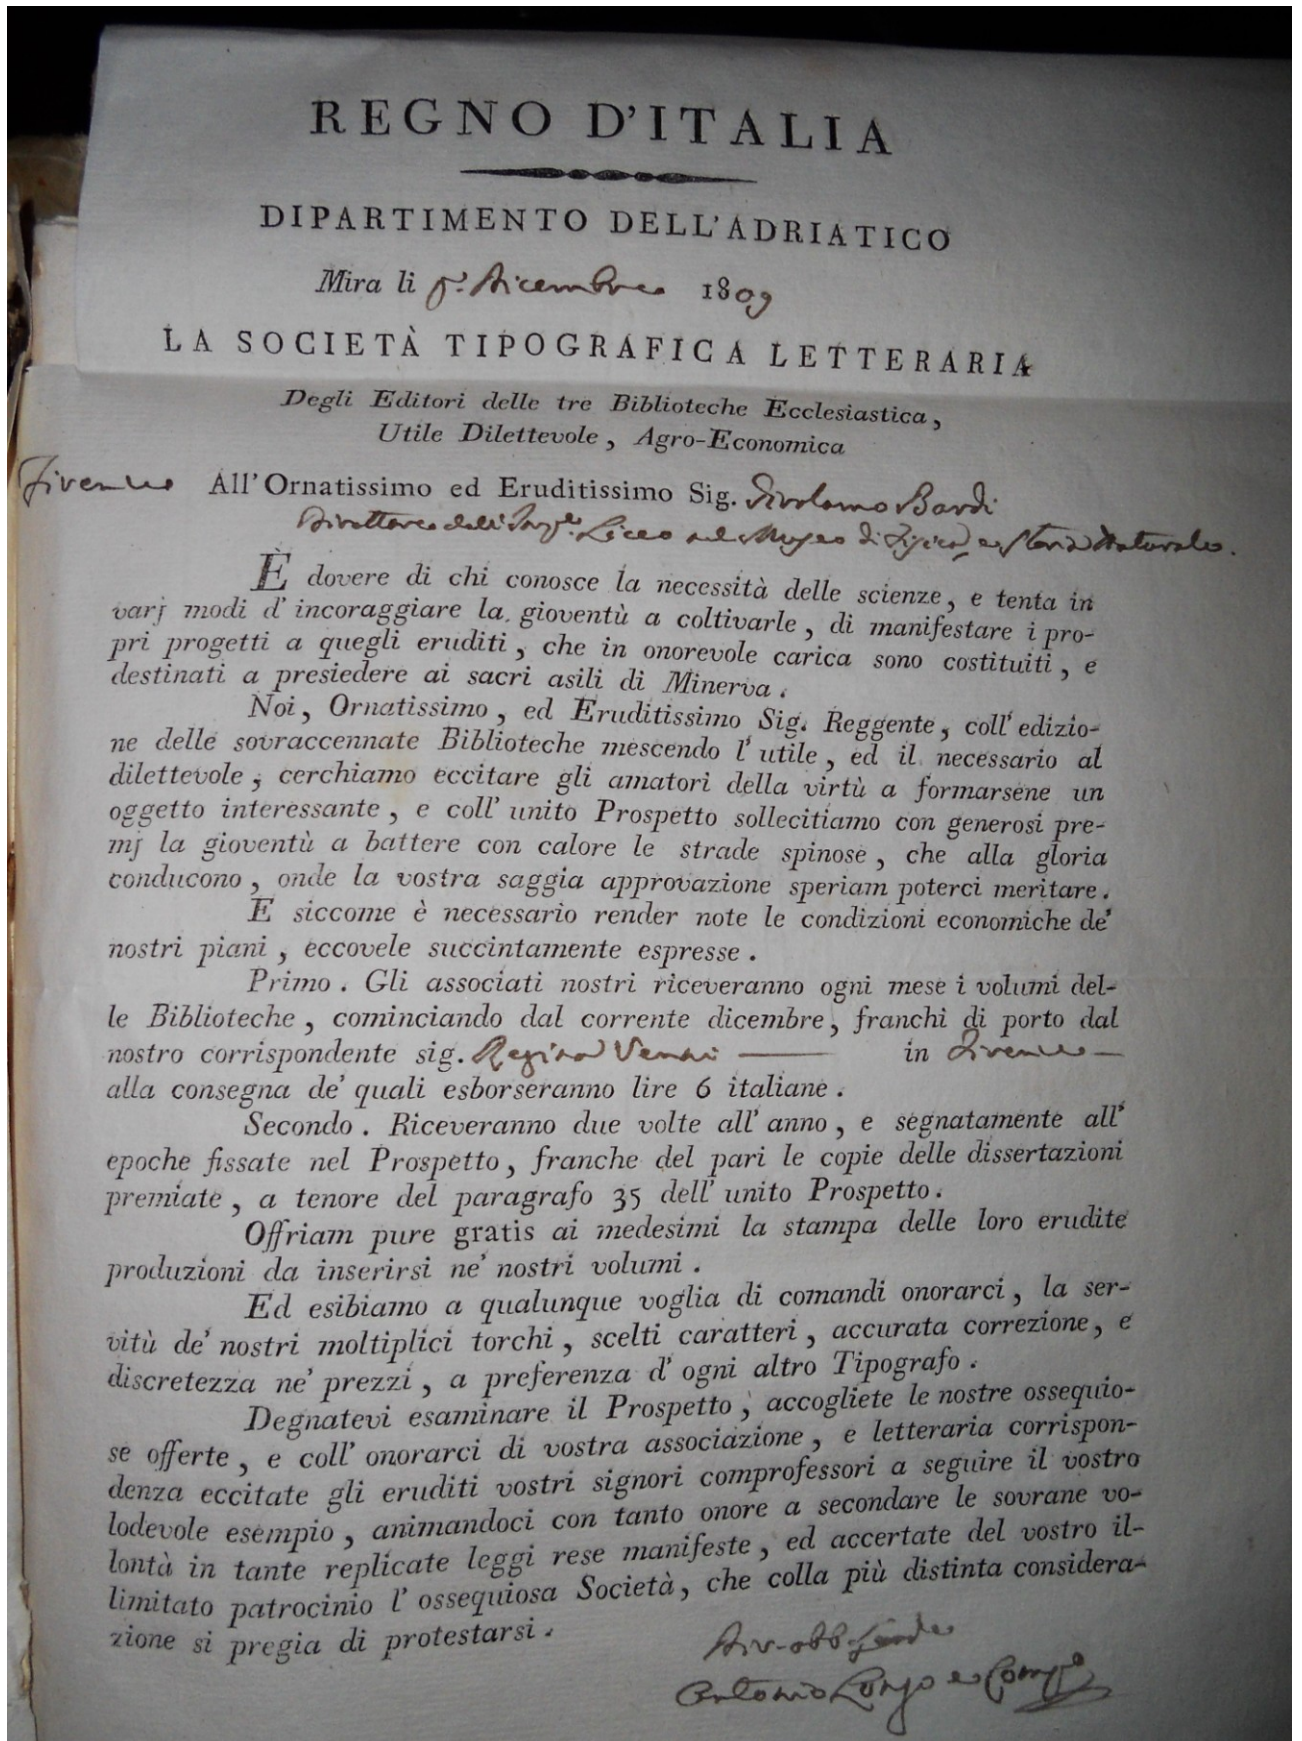 REGNO D'ITALIA
DIPARTIMENTO DELL'ADRIATICO
Mira li Dicembre 1809
LA SOCIETÀ TIPOGRAFICA LETTERARIA
Degli Editori delle tre Biblioteche Ecclesiastica,
Utile Dilettevole, Agro-Economica
Firenze All'Ornatissimo ed Eruditissimo Sig. Girolamo Bardi
Direttore dell' Liceo nel Museo di Fisica, e Storia Naturale.
È dovere di chi conosce la necessità delle scienze, e tenta in
varj modi d'incoraggiare la gioventù a coltivarle, di manifestare i pro-
pri progetti a quegli eruditi, che in onorevole carica sono costituiti, e
destinati a presiedere ai sacri asili di Minerva.
Noi, Ornatissimo, ed Eruditissimo Sig. Reggente, coll'edizio-
ne delle sovraccennate Biblioteche mescendo l'utile, ed il necessario al
dilettevole, cerchiamo eccitare gli amatori della virtù a formarsene un
oggetto interessante, e coll'unito Prospetto sollecitiamo con generosi pre-
mj la gioventù a battere con calore le strade spinose, che alla gloria
conducono, onde la vostra saggia approvazione speriam poterci meritare.
E siccome è necessario render note le condizioni economiche de'
nostri piani, eccovele succintamente espresse.
Primo. Gli associati nostri riceveranno ogni mese i volumi del-
le Biblioteche, cominciando dal corrente dicembre, franchi di porto dal
nostro corrispondente sig. in Firenze
alla consegna de' quali esborseranno lire 6 italiane.
Secondo. Riceveranno due volte all'anno, e segnatamente all'
epoche fissate nel Prospetto, franche del pari le copie delle dissertazioni
premiate, a tenore del paragrafo 35 dell'unito Prospetto.
Offriam pure gratis ai medesimi la stampa delle loro erudite
produzioni da inserirsi ne' nostri volumi.
Ed esibiamo a qualunque voglia di comandi onorarci, la ser-
vitù de' nostri moltiplici torchi, scelti caratteri, accurata correzione, e
discretezza ne' prezzi, a preferenza d'ogni altro Tipografo.
Degnatevi esaminare il Prospetto, accogliete le nostre ossequio-
se offerte, e coll'onorarci di vostra associazione, e letteraria corrispon-
denza eccitate gli eruditi vostri signori comprofessori a seguire il vostro
lodevole esempio, animandoci con tanto onore a secondare le sovrane vo-
lontà in tante replicate leggi rese manifeste, ed accertate del vostro il-
limitato patrocinio l'ossequiosa Società, che colla più distinta considera-
zione si pregia di protestarsi.
Antonio Longo e Comp